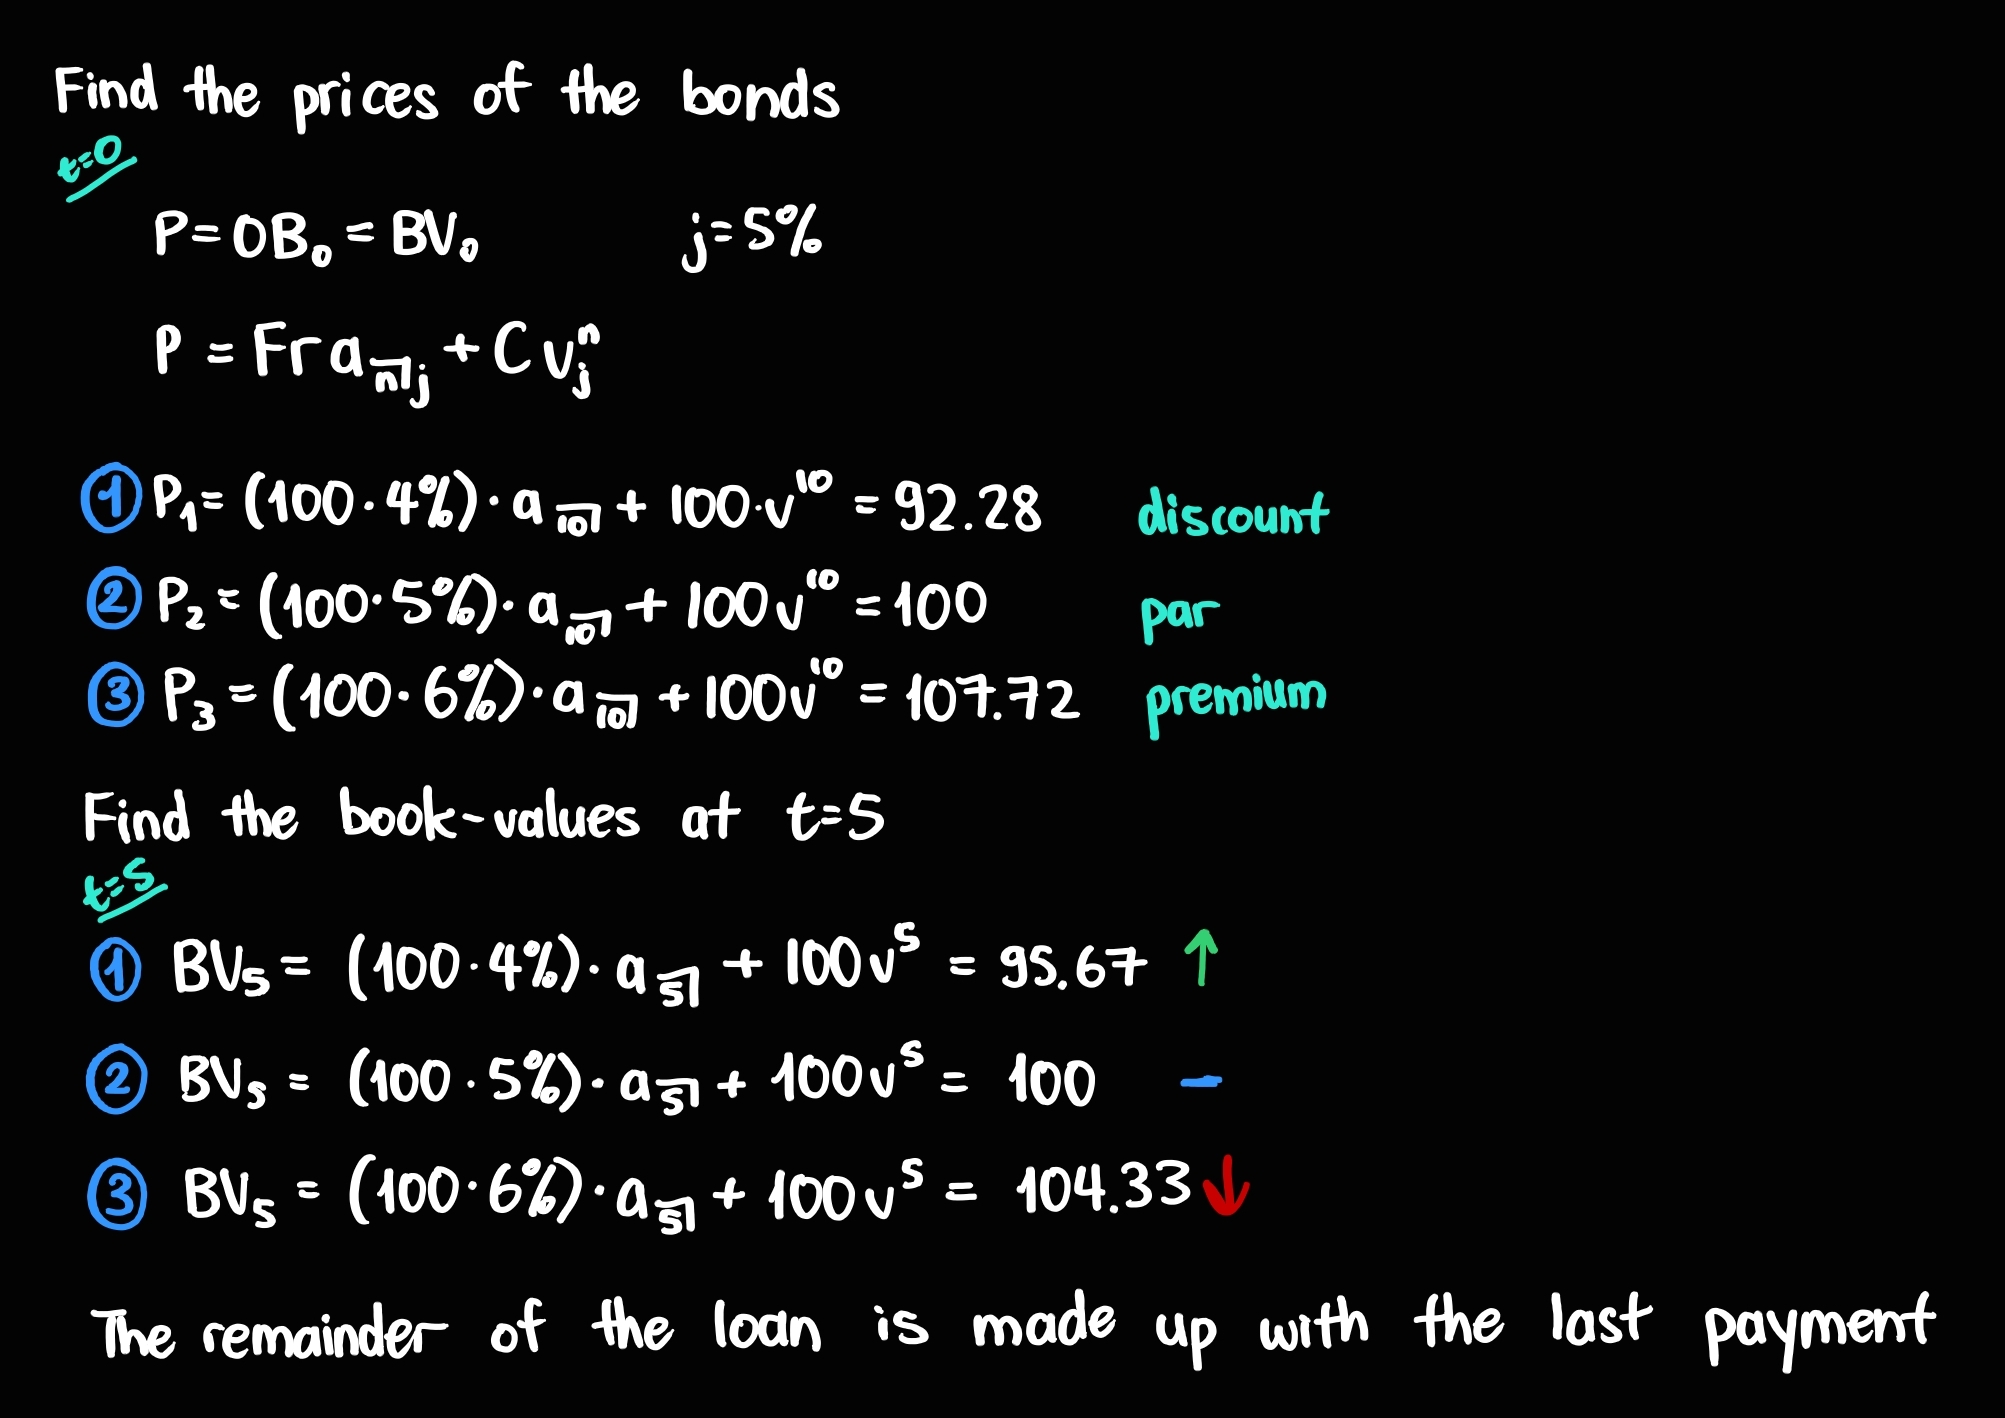 Find the prices of the bonds
t=0
P=OB₀=BV₀ j=5%
P = Fr a_n̅|j + C v_j^n
① P₁= (100·4%)·a_1̅0̅| + 100·v¹⁰ = 92.28 discount
② P₂ = (100·5%)·a_1̅0̅| + 100v¹⁰ =100 par
③ P₃ = (100·6%)·a_1̅0̅| + 100v¹⁰ = 107.72 premium
Find the book-values at t=5
t=5
① BV₅ = (100·4%)·a_5̅| + 100v⁵ = 95.67 ↑
② BV₅ = (100·5%)·a_5̅| + 100v⁵ = 100 –
③ BV₅ = (100·6%)·a_5̅| + 100v⁵ = 104.33 ↓
The remainder of the loan is made up with the last payment